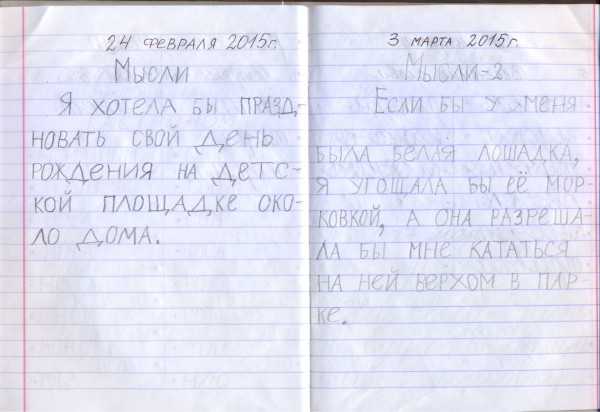 24 ФЕВРАЛЯ 2015г.
МЫСЛИ
Я ХОТЕЛА БЫ ПРАЗД-
НОВАТЬ СВОЙ ДЕНЬ
РОЖДЕНИЯ НА ДЕТС-
КОЙ ПЛОЩАДКЕ ОКО-
ЛО ДОМА.
3 МАРТА 2015г.
МЫСЛИ-2
ЕСЛИ БЫ У МЕНЯ
БЫЛА БЕЛАЯ ЛОШАДКА,
Я УГОЩАЛА БЫ ЕЁ МОР-
КОВКОЙ, А ОНА РАЗРЕША-
ЛА БЫ МНЕ КАТАТЬСЯ
НА НЕЙ ВЕРХОМ В ПАР-
КЕ.